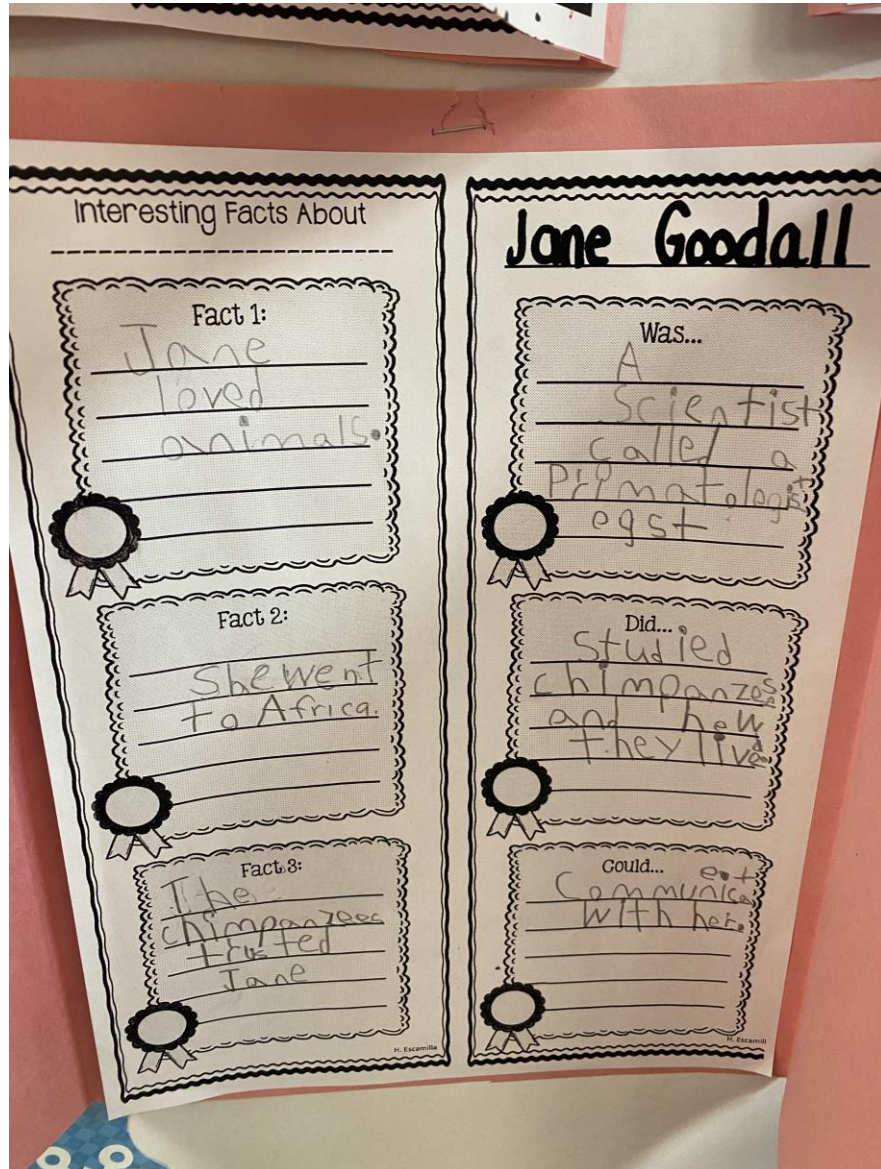 Interesting Facts About
Fact 1:
Jane
loved
animals.
Fact 2:
She went
to Africa.
Fact 3:
The
chimpanzees
trusted
Jane
H. Escamilla
Jane Goodall
Was...
A
Scientist
called a
Primatologist
egst
Did...
Studied
chimpanzes
and how
they live.
Could...
Communicaet
with her.
H. Escamill